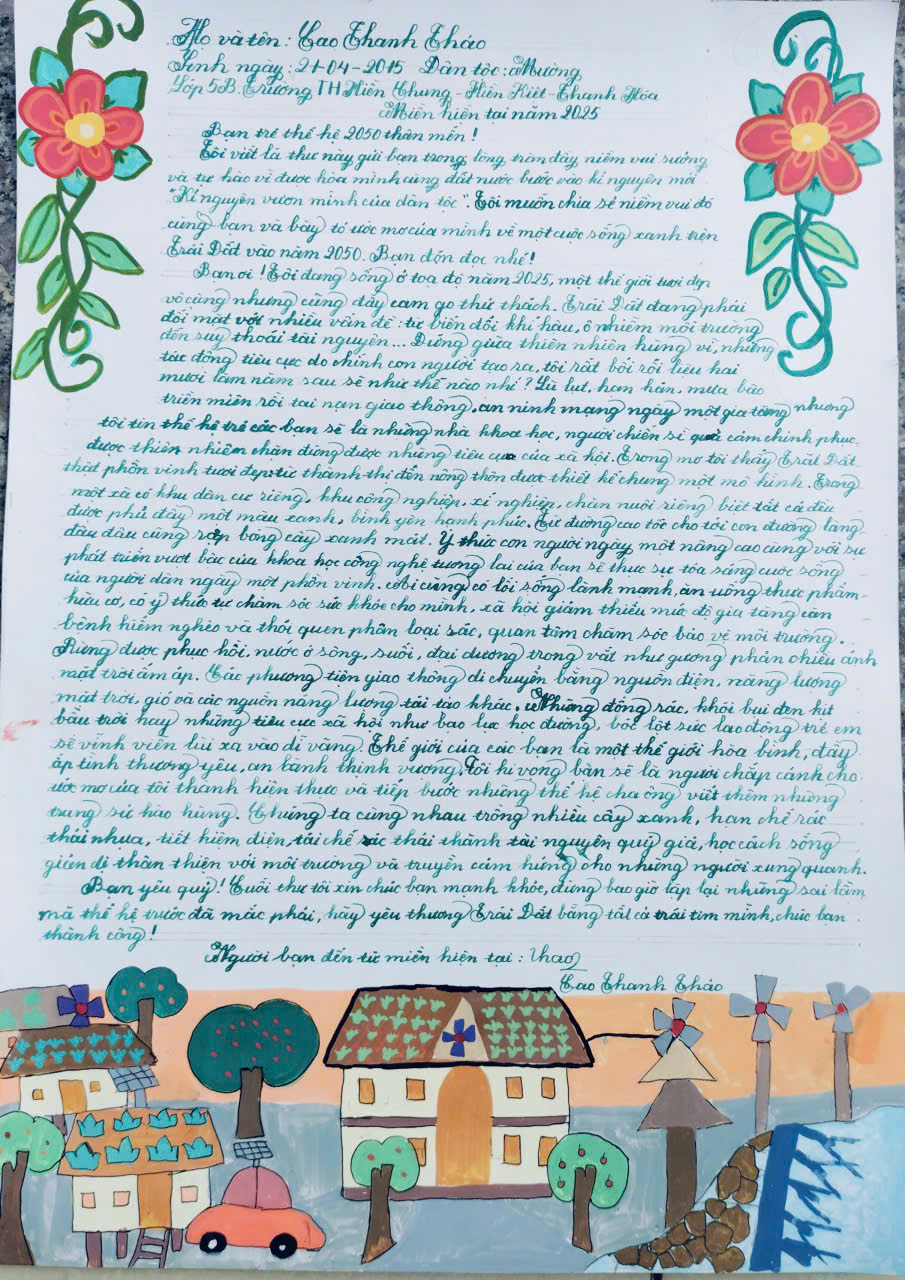 Họ và tên: Cao Thanh Thảo
Sinh ngày: 21-04-2015 Dân tộc: Mường
Lớp 5B. Trường TH Hiền Chung - Hiền Kiệt - Thanh Hóa
Miền hiện tại năm 2025
Bạn trẻ thế hệ 2050 thân mến!
Tôi viết lá thư này gửi bạn trong lòng tràn đầy niềm vui sướng
và tự hào vì được hòa mình cùng đất nước bước vào kỉ nguyên mới
"Kỉ nguyên vươn mình của dân tộc". Tôi muốn chia sẻ niềm vui đó
cùng bạn và bày tỏ ước mơ của mình về một cuộc sống xanh trên
Trái Đất vào năm 2050. Bạn đón đọc nhé!
Bạn ơi! Tôi đang sống ở toạ độ năm 2025, một thế giới tươi đẹp
vô cùng nhưng cũng đầy cam go thử thách. Trái Đất đang phải
đối mặt với nhiều vấn đề: từ biến đổi khí hậu, ô nhiễm môi trường
đến suy thoái tài nguyên... Đứng giữa thiên nhiên hùng vĩ, những
tác động tiêu cực do chính con người tạo ra, tôi rất bối rối liệu hai
mươi lăm năm sau sẽ như thế nào nhỉ? Lũ lụt, hạn hán, mưa bão
triền miên rồi tai nạn giao thông, an ninh mạng ngày một gia tăng nhưng
tôi tin thế hệ trẻ các bạn sẽ là những nhà khoa học, người chiến sĩ quả cảm chinh phục
được thiên nhiên chặn đứng được những tiêu cực của xã hội. Trong mơ tôi thấy Trái Đất
thật phồn vinh tươi đẹp từ thành thị đến nông thôn được thiết kế chung một mô hình. Trong
một xã có khu dân cư riêng, khu công nghiệp, xí nghiệp, chăn nuôi riêng biệt tất cả đều
được phủ đầy một màu xanh, bình yên hạnh phúc. Từ đường cao tốc cho tới con đường làng
đâu đâu cũng rợp bóng cây xanh mát. Ý thức con người ngày một nâng cao cùng với sự
phát triển vượt bậc của khoa học công nghệ tương lai của bạn sẽ thực sự tỏa sáng cuộc sống
của người dân ngày một phồn vinh. Ai cũng có lối sống lành mạnh, ăn uống thực phẩm
hữu cơ, có ý thức tự chăm sóc sức khỏe cho mình, xã hội giảm thiểu mức độ gia tăng căn
bệnh hiểm nghèo và thói quen phân loại rác, quan tâm chăm sóc bảo vệ môi trường.
Rừng được phục hồi, nước ở sông, suối, đại dương trong vắt như gương phản chiếu ánh
mặt trời ấm áp. Các phương tiện giao thông di chuyển bằng nguồn điện, năng lượng
mặt trời, gió và các nguồn năng lượng tái tạo khác. Những đống rác, khói bụi đen kịt
bầu trời hay những tiêu cực xã hội như bạo lực học đường, bóc lột sức lao động trẻ em
sẽ vĩnh viễn lùi xa vào dĩ vãng. Thế giới của các bạn là một thế giới hòa bình, đầy
ắp tình thương yêu, an lành thịnh vượng. Tôi hi vọng bạn sẽ là người chắp cánh cho
ước mơ của tôi thành hiện thực và tiếp bước những thế hệ cha ông viết thêm những
trang sử hào hùng. Chúng ta cùng nhau trồng nhiều cây xanh, hạn chế rác
thải nhựa, tiết kiệm điện, tái chế rác thải thành tài nguyên quý giá, học cách sống
giản dị thân thiện với môi trường và truyền cảm hứng cho những người xung quanh.
Bạn yêu quý! Cuối thư tôi xin chúc bạn mạnh khỏe, đừng bao giờ lặp lại những sai lầm
mà thế hệ trước đã mắc phải, hãy yêu thương Trái Đất bằng tất cả trái tim mình, chúc bạn
thành công!
Người bạn đến từ miền hiện tại: Thảo
Cao Thanh Thảo